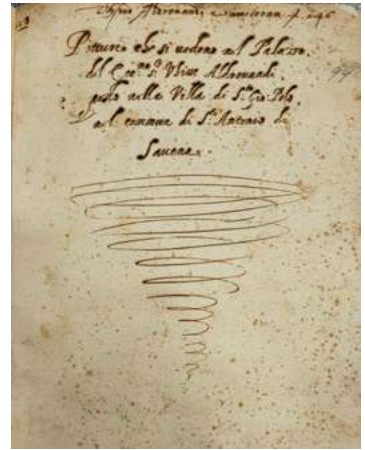 Pitture che si vedono nel Palazzo
del Ecc.mo S. Ulisse Aldrovandi
posto nella Villa di S. Gio: Polo
nel comune di S. Antonio di
Savena.